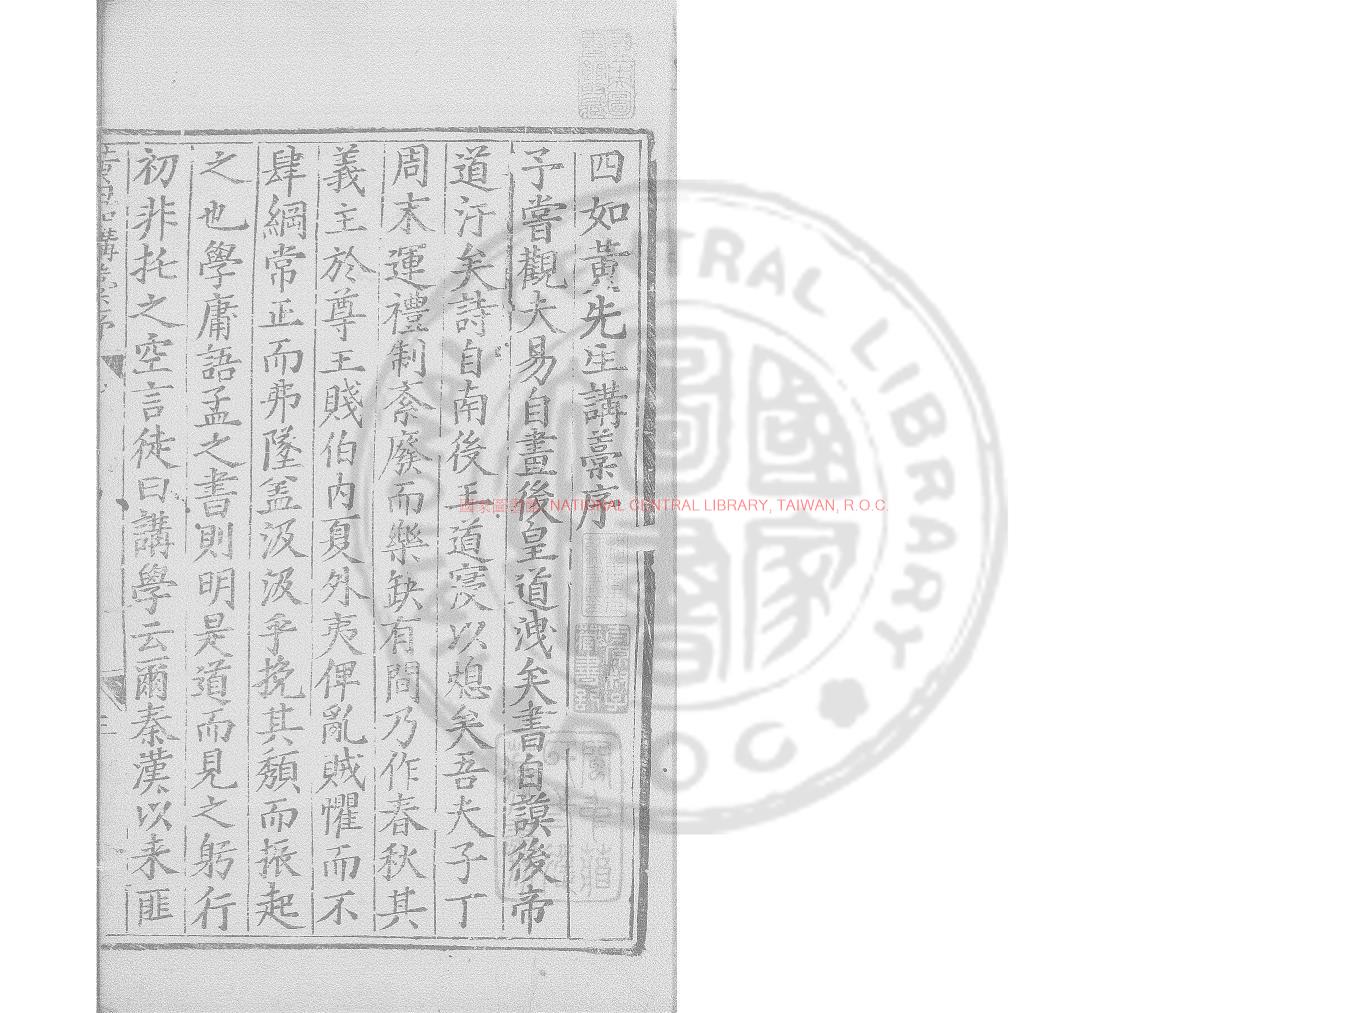 四如黃先生講藁序
予嘗觀夫易自畫後皇道洩矣書自謨後帝
道汙矣詩自南後王道寖以熄矣吾夫子丁
周末運禮制紊廢而樂缺有間乃作春秋其
義主於尊王賤伯內夏外夷俾亂賊懼而不
肆綱常正而弗墜盖汲汲乎挽其頹而振起
之也學庸語孟之書則明是道而見之躬行
初非托之空言徒曰講學云爾秦漢以来匪
國家圖書館, NATIONAL CENTRAL LIBRARY, TAIWAN, R.O.C.